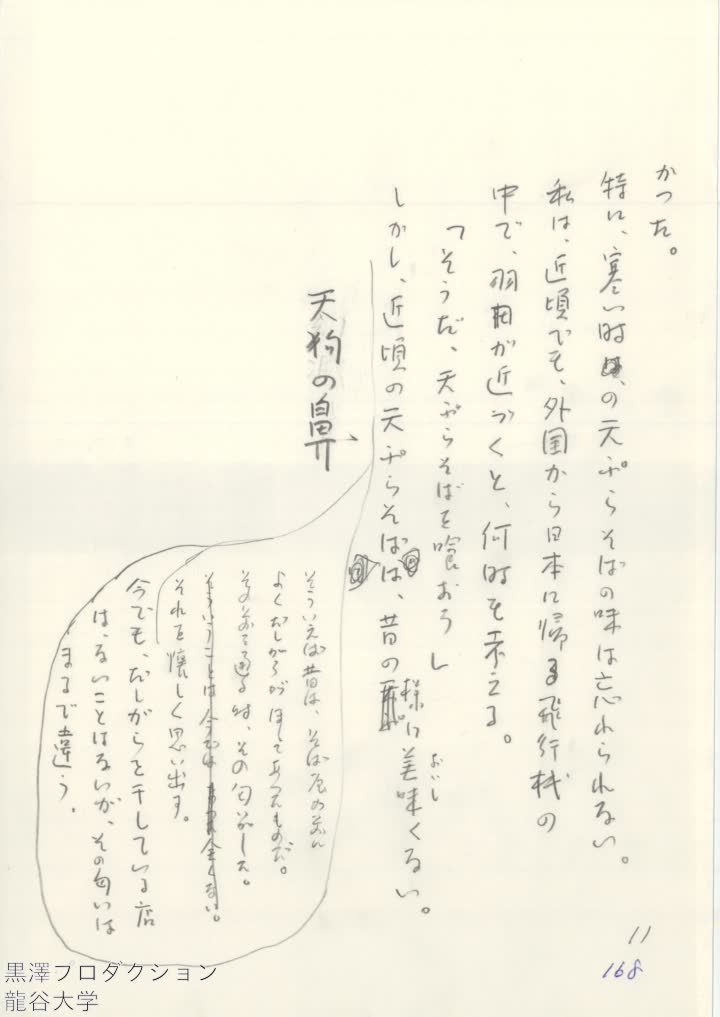 かつた。
特に、寒い時の天ぷらそばの味は忘れられない。
私は、近頃でも、外国から日本に帰る飛行機の
中で、羽田が近づくと、何時も考える。
「そうだ、天ぷらそばを喰おう」
しかし、近頃の天ぷらそばは、昔の様に美味くない。
おいし
天狗の鼻
そういえば昔は、そば屋の前に
よくだしがらがほしてあつたものだ。
その前を通る時、その匂がした。
そういうことは今では全くない。
それを懐しく思い出す。
今でも、だしがらを干している店
は、ないことはないが、その匂いは
まるで違う。
11
168
黒澤プロダクション
龍谷大学